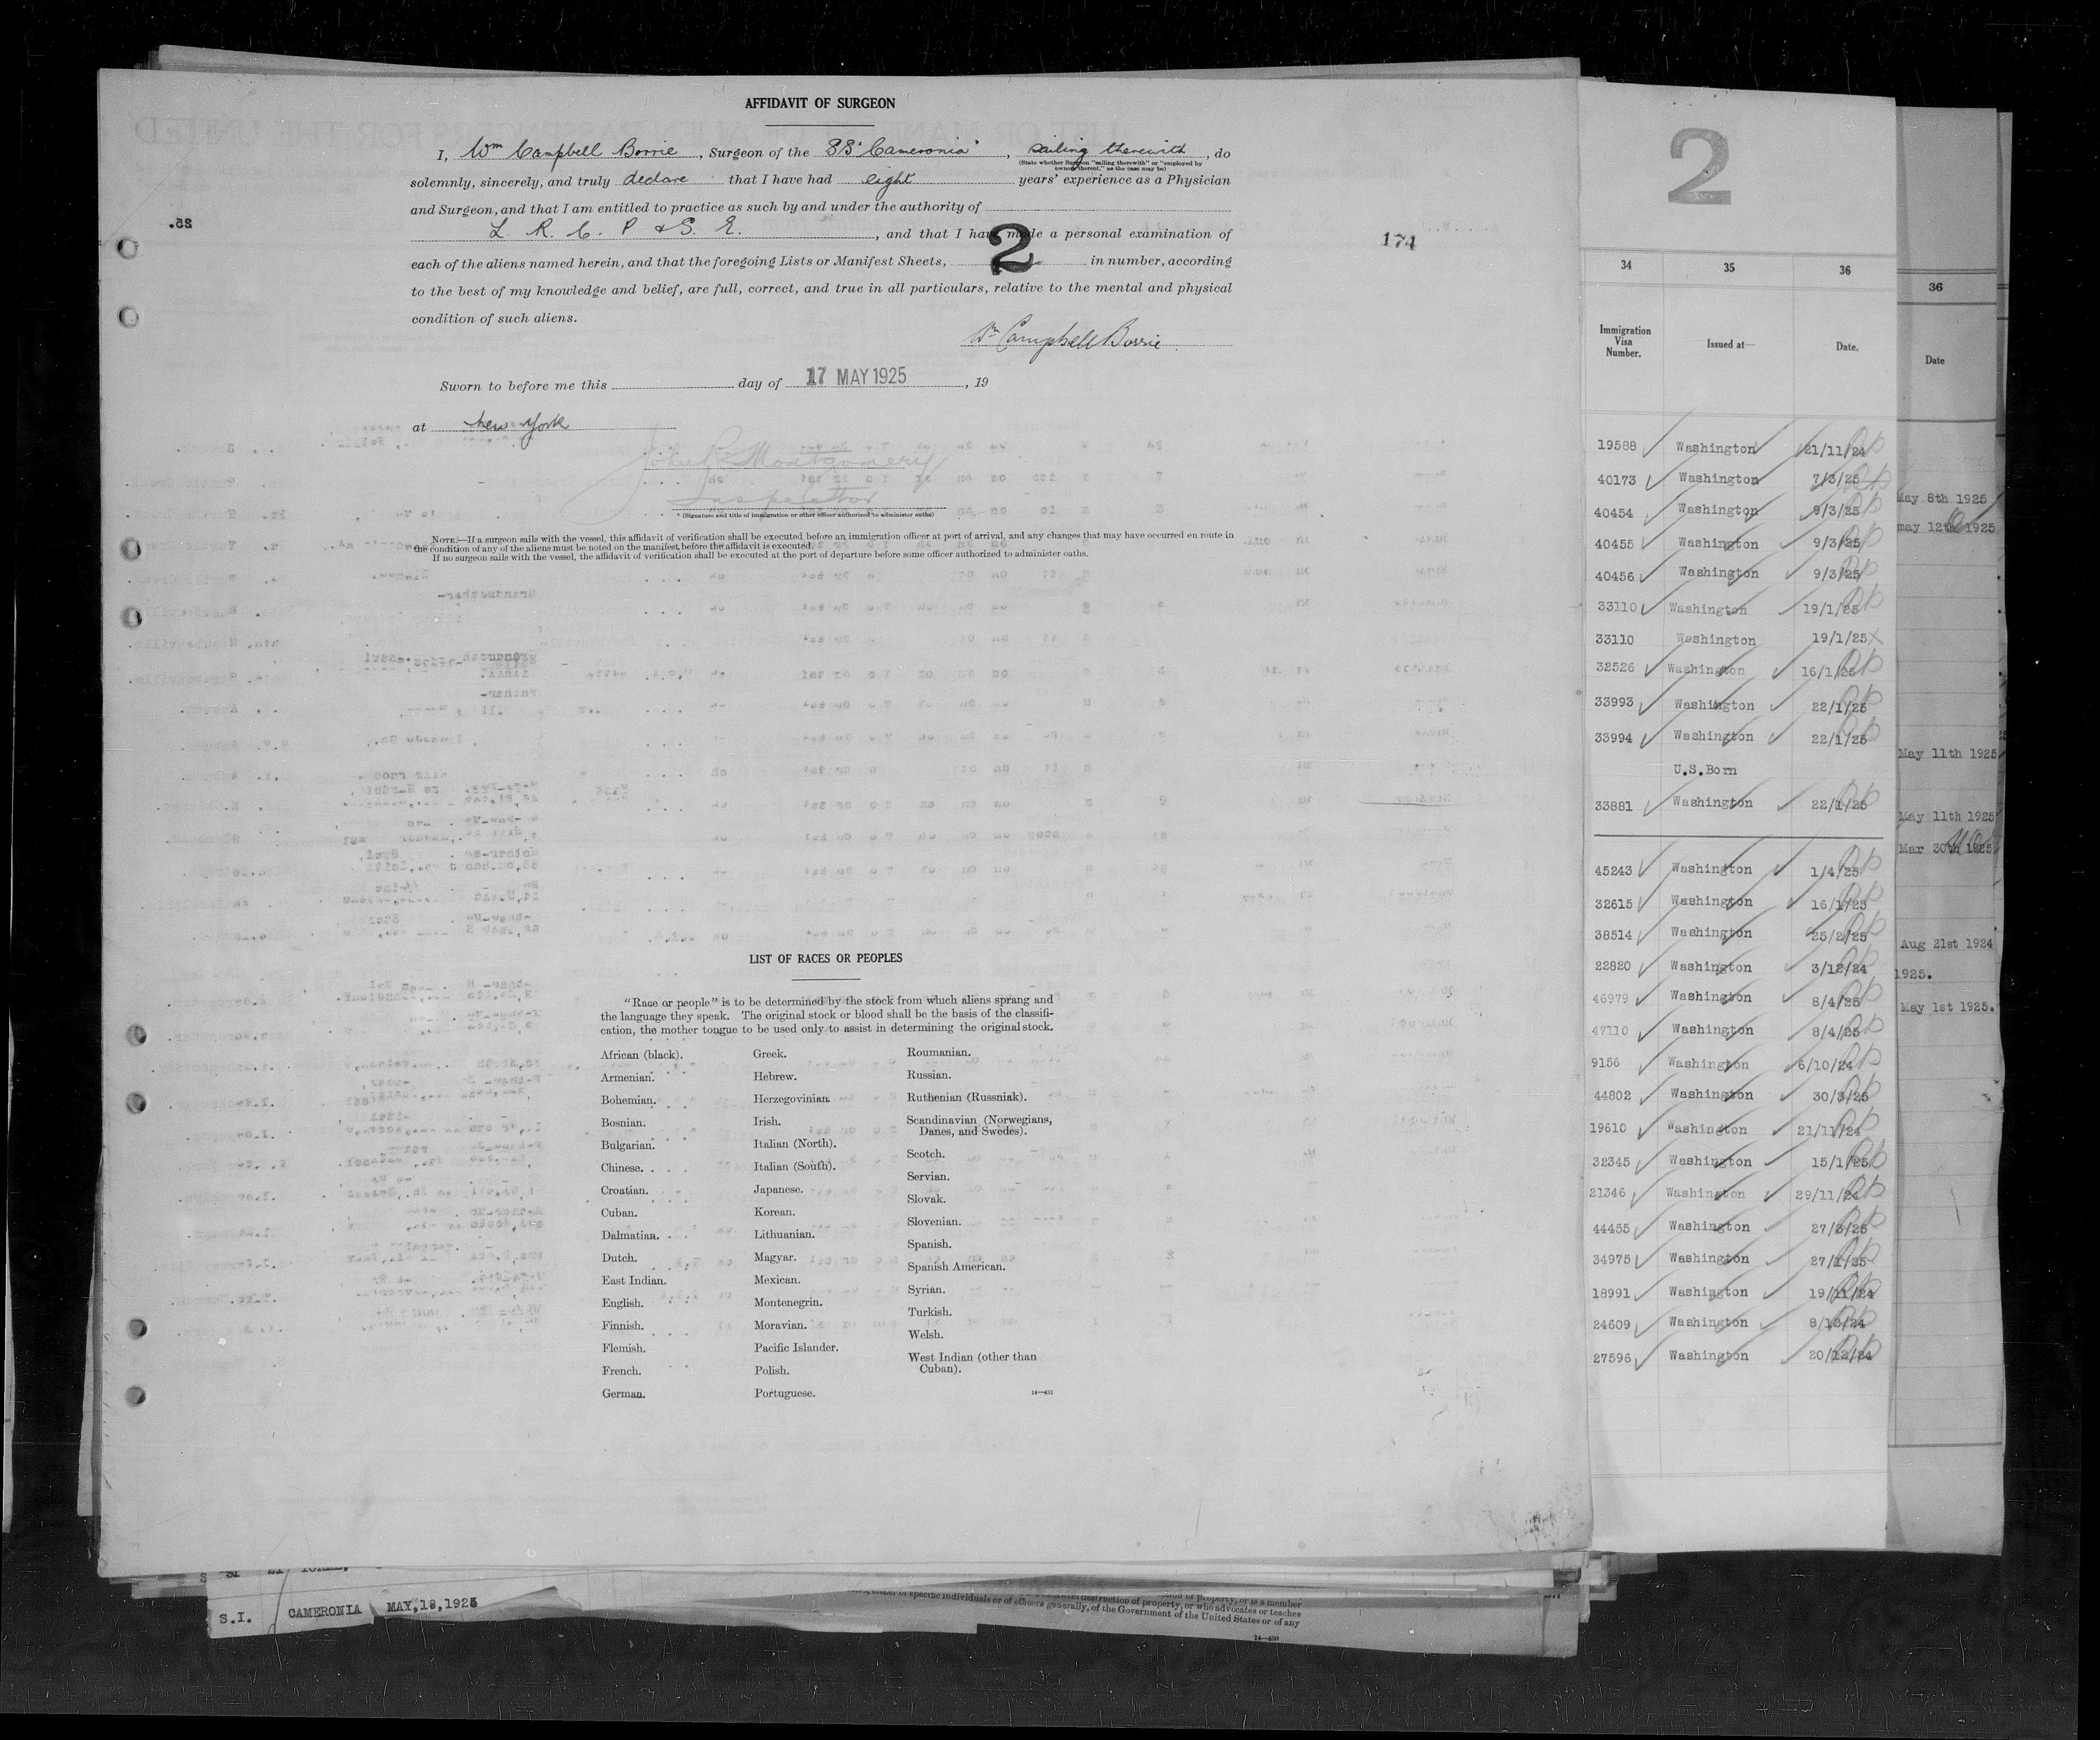 AFFIDAVIT OF SURGEON
I, Wm Campbell Borrie, Surgeon of the SS "Cameronia", sailing therewith, do
(State whether Surgeon "sailing therewith" or "employed by
owners thereof," as the case may be)
solemnly, sincerely, and truly declare that I have had eight years' experience as a Physician
and Surgeon, and that I am entitled to practice as such by and under the authority of
L. R. C. P & S. E., and that I have made a personal examination of
each of the aliens named herein, and that the foregoing Lists or Manifest Sheets, 2 in number, according
to the best of my knowledge and belief, are full, correct, and true in all particulars, relative to the mental and physical
condition of such aliens.
Wm Campbell Borrie
Sworn to before me this day of 17 MAY 1925, 19
at New York
John R Montgomery
Inspector
* (Signature and title of immigration or other officer authorized to administer oaths)
NOTE.—If a surgeon sails with the vessel, this affidavit of verification shall be executed before an immigration officer at port of arrival, and any changes that may have occurred en route in
the condition of any of the aliens must be noted on the manifest before the affidavit is executed.
If no surgeon sails with the vessel, the affidavit of verification shall be executed at the port of departure before some officer authorized to administer oaths.
174
LIST OF RACES OR PEOPLES
"Race or people" is to be determined by the stock from which aliens sprang and
the language they speak. The original stock or blood shall be the basis of the classifi-
cation, the mother tongue to be used only to assist in determining the original stock.
African (black).
Armenian.
Bohemian.
Bosnian.
Bulgarian.
Chinese.
Croatian.
Cuban.
Dalmatian.
Dutch.
East Indian.
English.
Finnish.
Flemish.
French.
German.
Greek.
Hebrew.
Herzegovinian.
Irish.
Italian (North).
Italian (South).
Japanese.
Korean.
Lithuanian.
Magyar.
Mexican.
Montenegrin.
Moravian.
Pacific Islander.
Polish.
Portuguese.
Roumanian.
Russian.
Ruthenian (Russniak).
Scandinavian (Norwegians,
Danes, and Swedes).
Scotch.
Servian.
Slovak.
Slovenian.
Spanish.
Spanish American.
Syrian.
Turkish.
Welsh.
West Indian (other than
Cuban).
14—431
2
34 35 36
Immigration
Visa
Number.
Issued at—
Date.
19588 Washington 21/11/24
40173 Washington 7/3/25
40454 Washington 9/3/25
40455 Washington 9/3/25
40456 Washington 9/3/25
33110 Washington 19/1/25
33110 Washington 19/1/25
32526 Washington 16/1/25
33993 Washington 22/1/25
33994 Washington 22/1/25
U.S.Born
33881 Washington 22/1/25
45243 Washington 1/4/25
32615 Washington 16/1/25
38514 Washington 25/2/25
22820 Washington 3/12/24
46979 Washington 8/4/25
47110 Washington 8/4/25
9156 Washington 6/10/24
44802 Washington 30/3/25
19610 Washington 21/11/24
32345 Washington 15/1/25
21346 Washington 29/11/24
44455 Washington 27/3/25
34975 Washington 27/1/25
18991 Washington 19/11/24
24609 Washington 8/12/24
27596 Washington 20/12/24
36
Date
May 8th 1925
may 12th 1925
May 11th 1925
May 11th 1925
Mar 30th 1925
Aug 21st 1924
1925.
May 1st 1925.
S.I. CAMERONIA MAY,18,1925
either of specific individuals or of officers generally, of the Government of the United States or of any
destruction of property, or who advocates or teaches
of property, or is a member
14—430